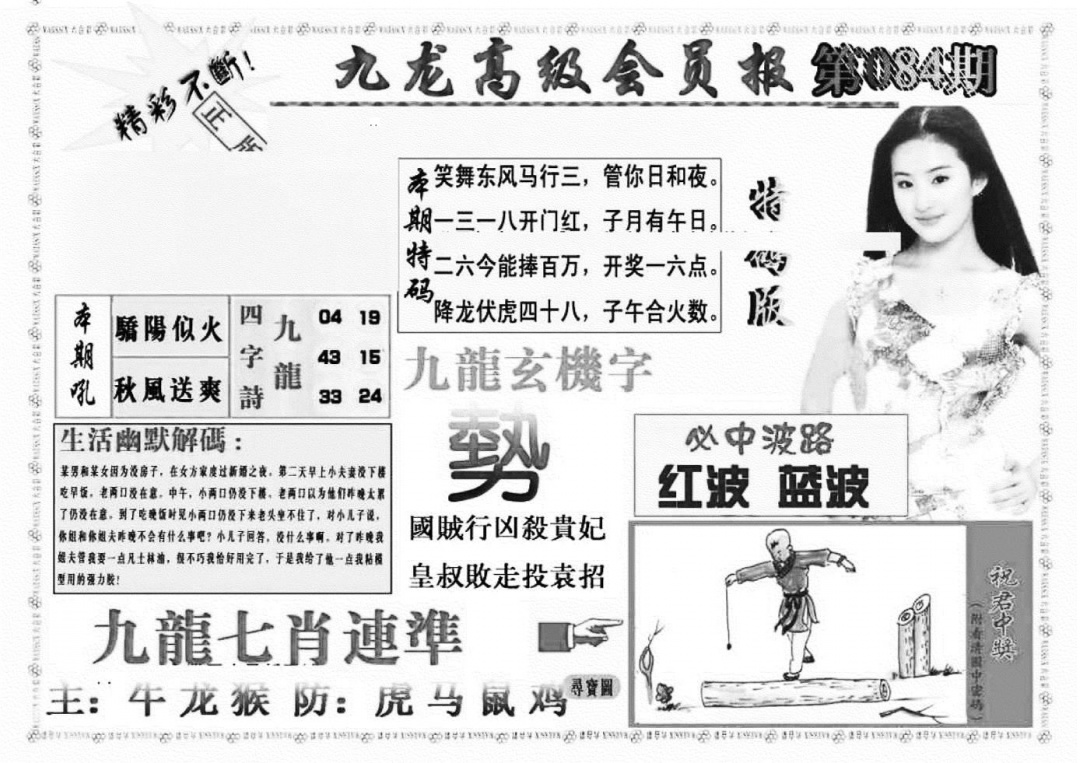 精彩不斷!
正版
九龙高级会员报
第084期
本期特码
笑舞东风马行三，管你日和夜。
一三一八开门红，子月有午日。
二六今能捧百万，开奖一六点。
降龙伏虎四十八，子午合火数。
特码版
本期吼
驕陽似火
秋風送爽
四字詩
九龍
04 19
43 15
33 24
九龍玄機字
勢
國賊行凶殺貴妃
皇叔敗走投袁招
生活幽默解碼：
某男和某女因为没房子，在女方家度过新婚之夜，第二天早上小夫妻没下楼
吃早饭，老两口没在意，中午，小两口仍没下楼，老两口以为他们昨晚太累
了仍没在意，到了吃晚饭时见小两口仍没下来老头坐不住了，对小儿子说，
你姐和你姐夫昨晚不会有什么事吧？小儿子回答，没什么事啊，对了昨晚我
姐夫管我要一点凡士林油，很不巧我恰好用完了，于是我给了他一点我粘模
型用的强力胶！
必中波路
红波 蓝波
九龍七肖連準
主：牛龙猴 防：虎马鼠鸡
尋寶圖
祝君中奖
（附看清圖中密碼）